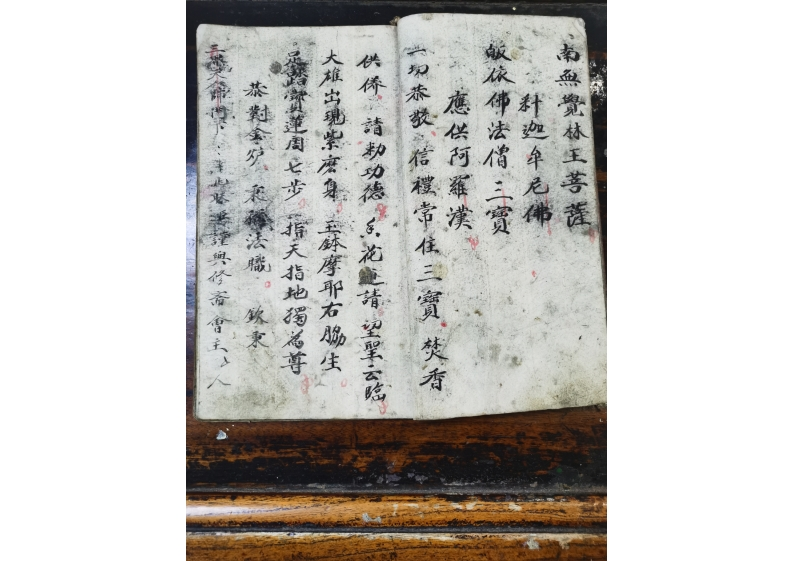 南無覺林王菩薩
釈迦牟尼佛
皈依佛法僧三寶
應供阿羅漢
一切恭敬 信禮常住三寶 焚香
供俻 請勅功德 香花 請 望聖云臨
大雄出現紫磨身 玉鉢摩耶右脇生
足 寶蓮周七步 指天指地獨為尊
恭對金炉 秉 法職 欽秉
三 門下 謹興修斋會主 人